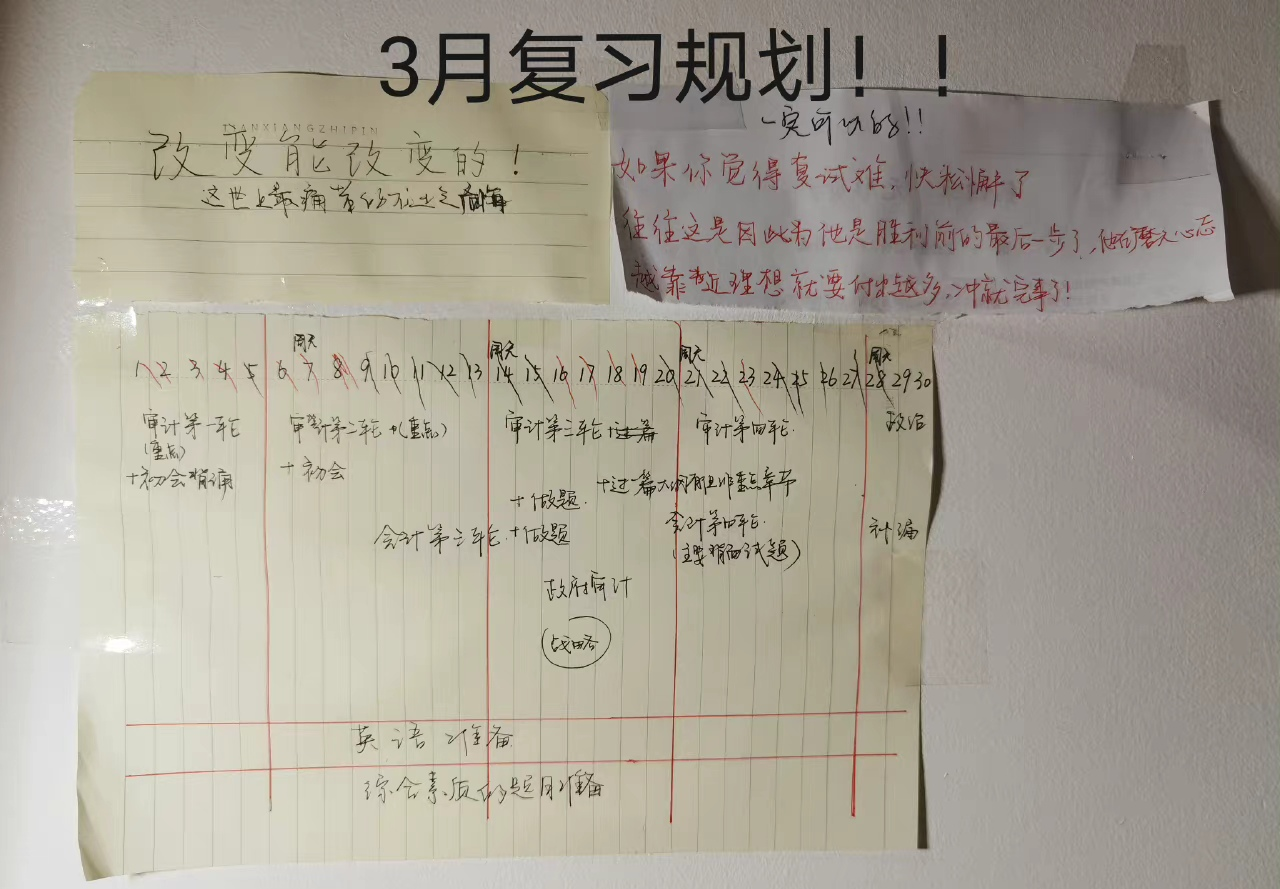 3月复习规划！！
TIANXIANGZHIPIN
改变能改变的！
这世上最痛苦的不过是后悔
一定可以的!!
如果你觉得复试难，快松懈了
往往这是因此为他是胜利前的最后一步了，他在磨人心态
越靠近理想就要付出越多，冲就完事了!
周天 周天 周天 周天
1 2 3 4 5 6 7 8 9 10 11 12 13 14 15 16 17 18 19 20 21 22 23 24 25 26 27 28 29 30
审计第一轮
(重点)
+初会背诵
审计第二轮+(重点)
+初会
审计第三轮
+做题
会计第三轮+做题
政府审计
战略
审计第四轮
+过一篇大纲而且非重点章节
会计第四轮
(主要背面试题)
政治
补漏
英语准备
综合素质的题目准备